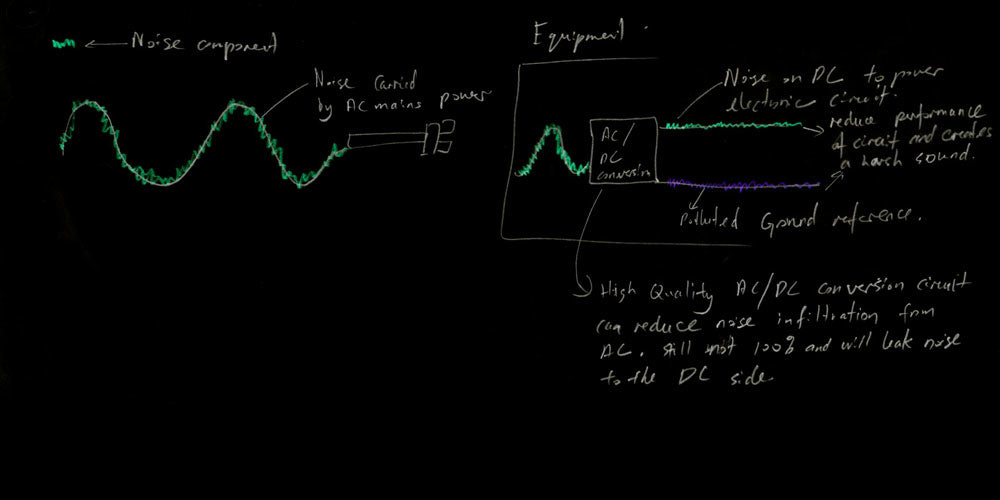 Noise component
Noise carried
by AC mains power
Equipment
Noise on DC to power
electronic circuit.
reduce performance
of circuit and creates
a harsh sound.
AC/
DC
conversion
Polluted Ground reference.
High Quality AC/DC conversion circuit
can reduce noise infiltration from
AC. still not 100% and will leak noise
to the DC side.